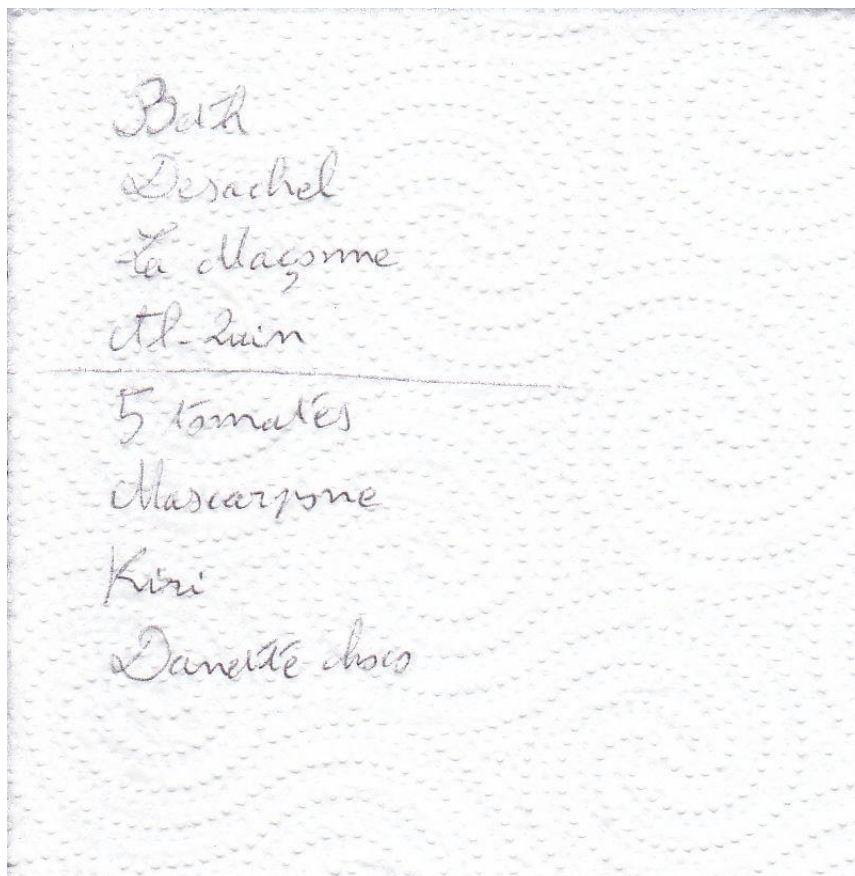 Barth
Desachel
La Maçonne
Al-Quin
5 tomates
Mascarpone
Kiri
Danette choco